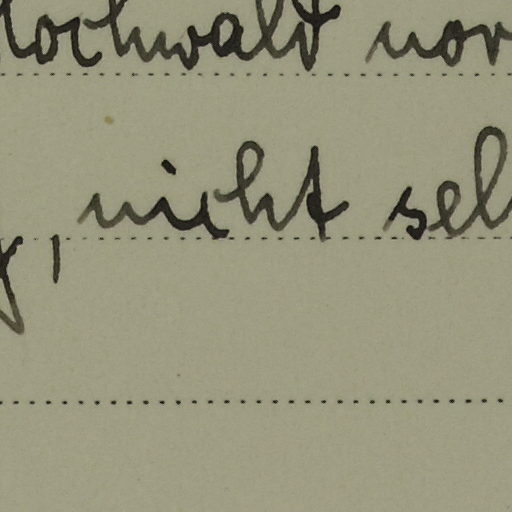 Hochwald nor
, nicht sel